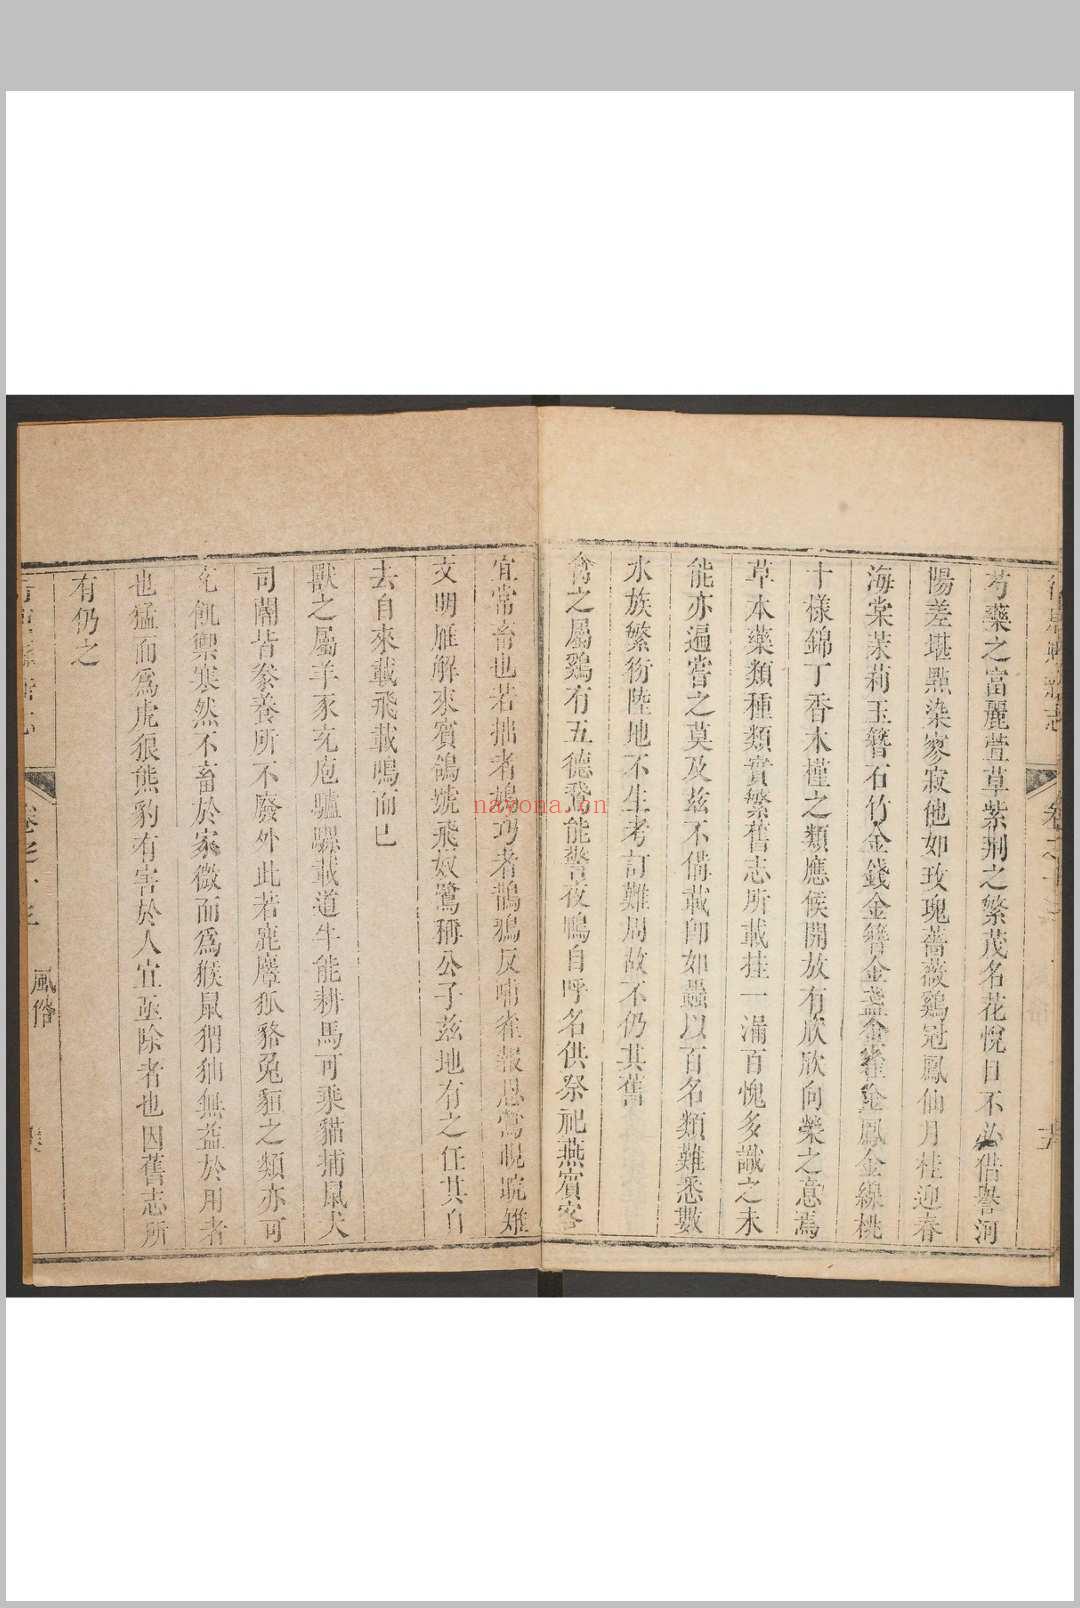 芍藥之富麗萱草紫荆之繁茂名花悅目不必借譽河
陽差堪點染寥寂他如玫瑰薔薇鷄冠鳳仙月桂迎春
海棠茉莉玉簪石竹金錢金簪金盞金雀金鳳金線桃
十樣錦丁香木槿之類應候開放有欣欣向榮之意焉
草本藥類種類實繁舊志所載挂一漏百愧多識之未
能亦遍嘗之莫及茲不備載即如蟲以百名類難悉數
水族繁衍陸地不生考訂難周故不仍其舊
禽之屬鷄有五德旣能警夜鴨自呼名供祭祀燕賓客
宜常畜也若拙者鳩巧者鵲鴉反哺雀報恩鶯睍睆雉
文明雁解來賓鴿號飛奴鷺稱公子茲地有之任其自
去自來載飛載鳴而已
獸之屬羊豕充庖驢騾載道牛能耕馬可乘貓捕鼠犬
司閽皆豢養所不廢外此若鹿麞狐貉兔貆之類亦可
充飢禦寒然不畜於家微而爲猴鼠猬䶉無益於用者
也猛而爲虎狼熊豹有害於人宜亟除者也因舊志所
有仍之
風俗
nayona.cn